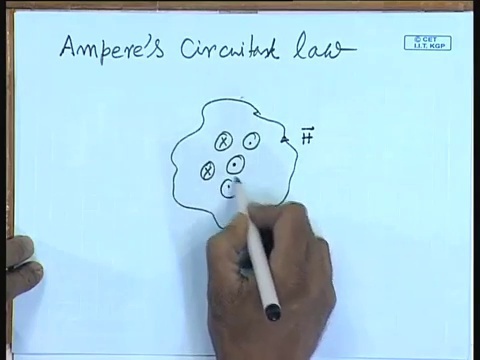 Ampere's Circuital law
© CET
I.I.T. KGP
x
x
H